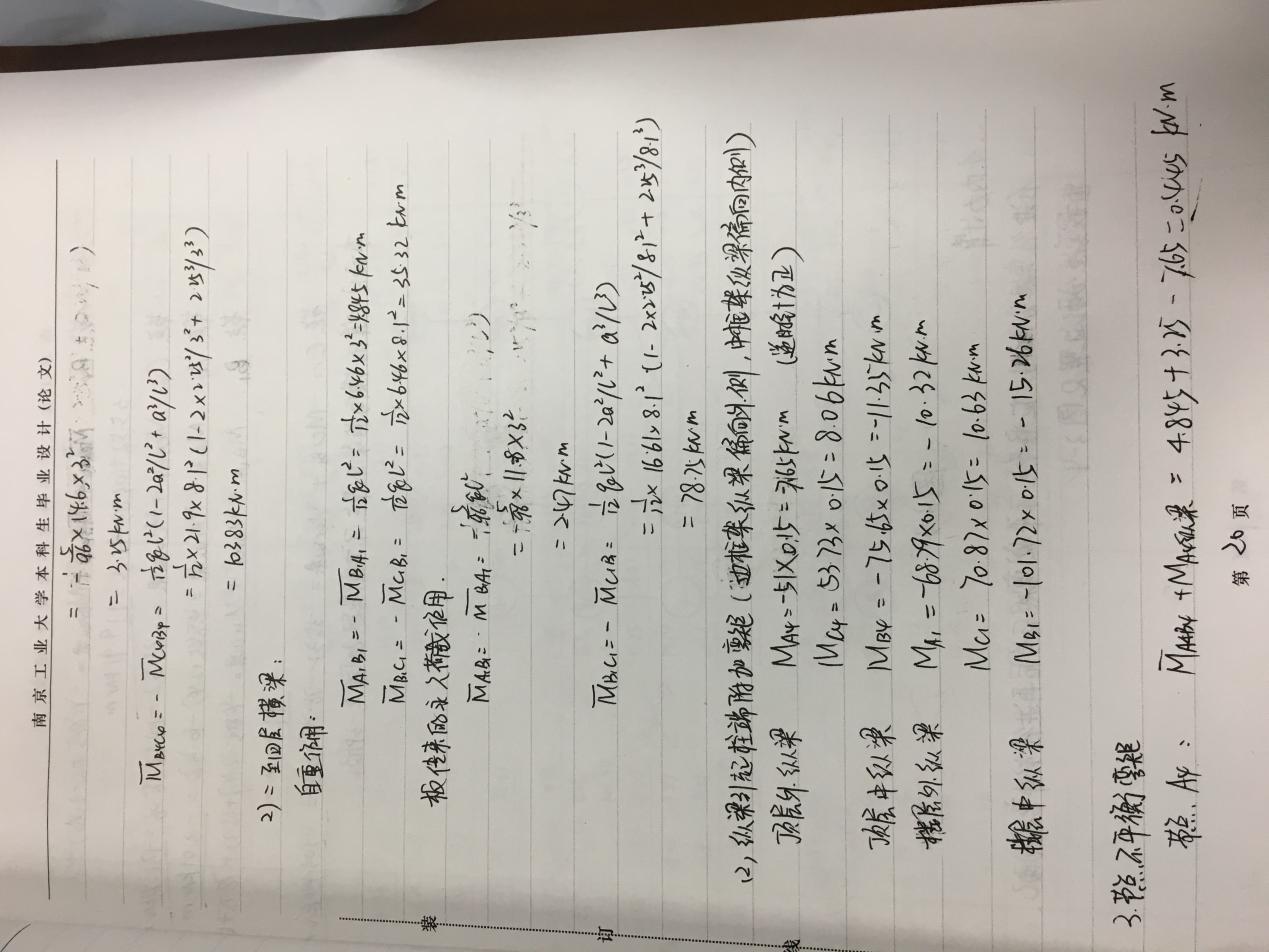 南京工业大学本科生毕业设计(论文)
= -5/96×14.6×3²
= 3.25 kN·m
M̅B4C4 = -M̅C4B4 = 1/12 gl²(1-2a²/l²+a³/l³)
= 1/12×21.9×8.1²(1-2×2.25²/3²+2.25³/3³)
= 103.83 kN·m
2) 二至四层横梁:
自重作用:
M̅A1B1 = -M̅B1A1 = 1/12 gl² = 1/12×6.46×3² = 4.845 kN·m
M̅B1C1 = -M̅C1B1 = 1/12 gl² = 1/12×6.46×8.1² = 35.32 kN·m
板传来的永久荷载作用.
M̅A1B1 = -M̅B1A1 = -5/96 gl²
= -5/96×11.8×3²
= 2.47 kN·m
M̅B1C1 = -M̅C1B1 = 1/12 gl²(1-2a²/l²+a³/l³)
= 1/12×16.61×8.1²(1-2×2.25²/8.1²+2.25³/8.1³)
= 78.25 kN·m
(2) 纵梁引起柱端附加弯矩(边框架纵梁偏向外侧,中框架纵梁偏向内侧)
顶层外纵梁 MA4=-51×0.15=-7.65 kN·m (逆时针为正)
MC4 = 53.73×0.15=8.06 kN·m
顶层中纵梁 MB4 = -75.65×0.15=-11.35 kN·m
楼层外纵梁 MA1 = -68.79×0.15=-10.32 kN·m
MC1 = 70.87×0.15=10.63 kN·m
楼层中纵梁 MB1 = -101.72×0.15=-15.26 kN·m
3.节点不平衡弯矩
节点A4: M̅A4B4+MA4纵梁 = 4.845+3.25-7.65=0.445 kN·m
第 20 页
装
订
线